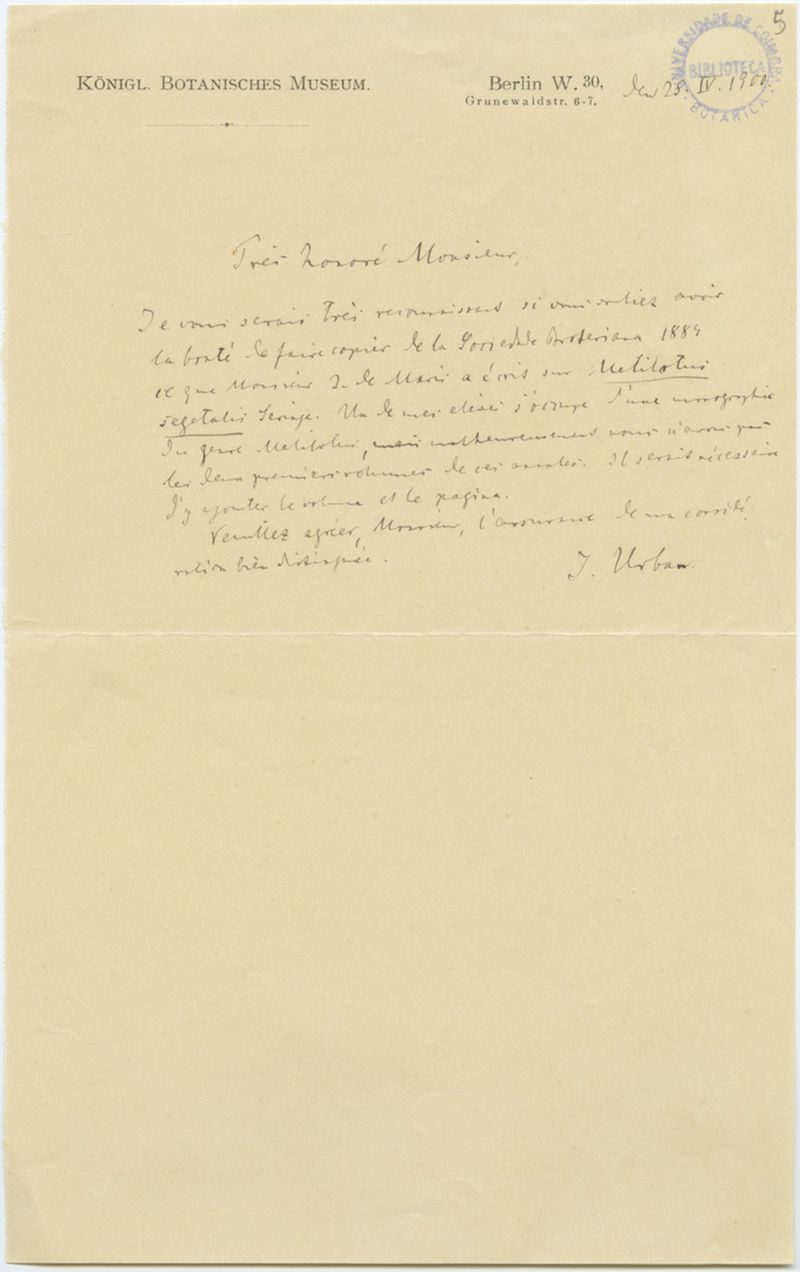 5
UNIVERSIDADE DE COIMBRA
BIBLIOTECA
BOTANICA
KÖNIGL. BOTANISCHES MUSEUM.
Berlin W. 30, den 25. IV. 1900.
Grunewaldstr. 6-7.
Très honoré Monsieur,
Je vous serais très reconnaissant si vous vouliez avoir
la bonté de faire copier de la Sociedade Broteriana 1884
ce que Monsieur J. de Mariz a écrit sur Melilotus
segetalis Seringe. Un de mes élèves s'occupe d'une monographie
du genre Melilotus, mais malheureusement nous n'avons pas
les deux premiers volumes de ces annales. Il serait nécessaire
d'y ajouter le volume et le pagina.
Veuillez agréer, Monsieur, l'assurance de ma considé-
ration bien distinguée.
I. Urban.